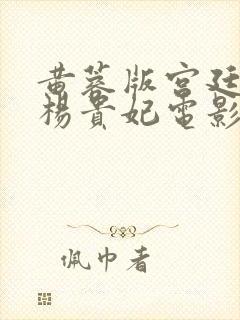 黄蓉版宫廷
杨贵妃电影
佩巾者